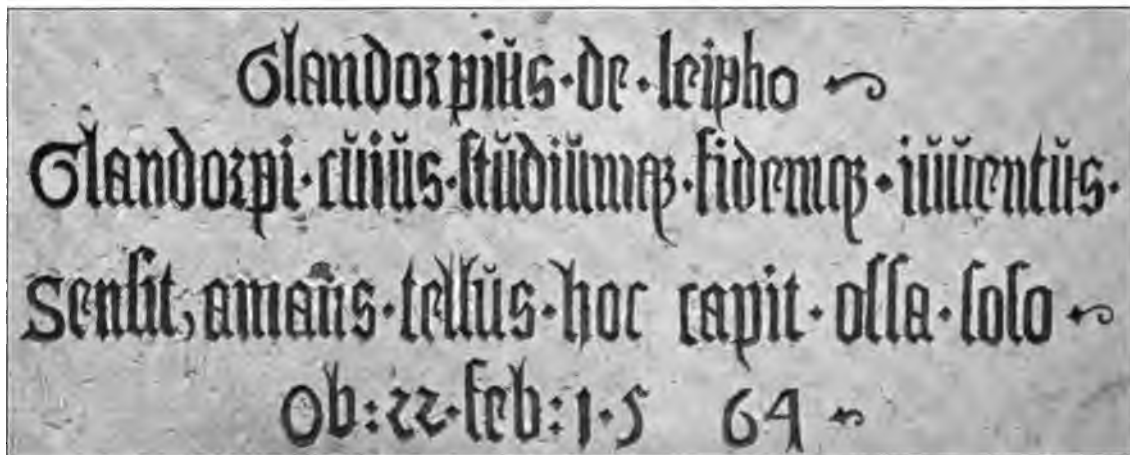 Glandorpiŭs·de·seipso
Glandorpi·cŭiŭs·stŭdiŭmqꝫ·fidemqꝫ·iŭŭentŭs·
Sensit, amans·tellŭs·hoc capit·ossa·solo
Ob:22·feb:1·5 64